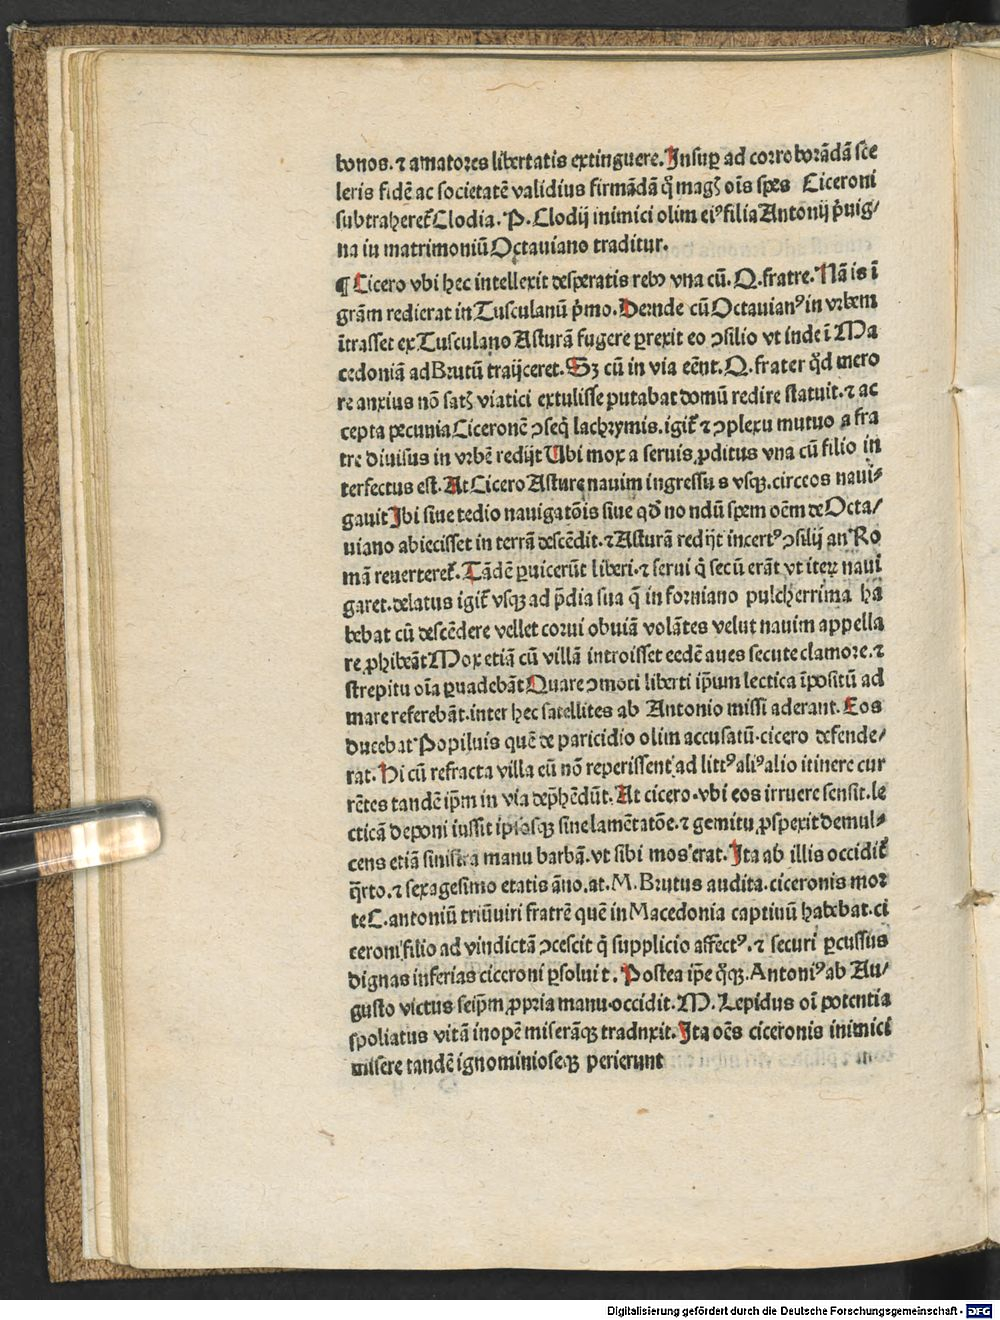 bonos. ⁊ amatores libertatis extinguere. Insuꝑ ad corroborādā sce
leris fidē ac societatē validius firmādā q̊ magꝭ oīs spes Ciceroni
subtraheret᷑ Clodia. P. Clodij inimici olim eiꝰ filia Antonij p̄uig⸗
na in matrimoniū Octauiano traditur.
¶ Cicero vbi hec intellexit desperatis rebꝫ vna cū. Q. fratre. Nā is ī
grām redierat in Tusculanū p̄mo. Deinde cū Octauianꝰ in vrbem
ītrasset ex Tusculano Asturā fugere ꝑrexit eo ↄsilio vt inde ī Ma
cedoniā ad Brutū traijceret. Sꝫ cū in via eēnt. Q. frater qd̊ mero
re anxius nō satꝭ viatici extulisse putabat domū redire statuit. ⁊ ac
cepta pecunia Ciceronē ↄseq̄ lachrymis. igit᷑ ⁊ ↄplexu mutuo a fra
tre diuisus in vrbē redijt Ubi mox a seruis ꝓditus vna cū filio in
terfectus est. At Cicero Asture nauim ingressus vsqꝫ. circeos naui⸗
gauit Ibi siue tedio nauigatōis siue qd̊ nondū spem oēm de Octa⸗
uiano abiecisset in terrā descēdit. ⁊ Asturā redijt incertꝰ ↄsilij an Ro
mā reuerteret᷑. Tādē ꝑuicerūt liberi. ⁊ serui q̄ secū erāt vt iteꝝ naui
garet. delatus igit᷑ vsqꝫ ad p̄dia sua q̄ in forniano pulcherrima ha
bebat cū descēdere vellet corui obuiā volātes velut nauim appella
re ꝓhibeāt Mox etiā cū villā introisset eedē aues secute clamore. ⁊
strepitu oīa ꝑuadebāt Quare ↄmoti liberti ip̄um lectica īpositū ad
mare referebāt. inter hec satellites ab Antonio missi aderant. Eos
ducebat Popiluis quē de paricidio olim accusatū. cicero defende⸗
rat. Hi cū refracta villa eū nō reperissent ad littꝰ aliꝰ alio itinere cur
rētes tandē ip̄m in via dep̄hēdūt. At cicero. vbi eos irruere sensit. le
cticā deponi iussit ip̄ōsqꝫ sine lamētatōe. ⁊ gemitu ꝓspexit demul⸗
cens etiā sinistra manu barbā. vt sibi mos erat. Ita ab illis occidit᷑
q̄rto. ⁊ sexagesimo etatis āno. at. M. Brutus audita. ciceronis mor
te C. antoniū triūuiri fratrē quē in Macedonia captiuū habebat. ci
ceroni filio ad vindictā ↄcescit q̄ supplicio affectꝰ. ⁊ securi ꝑcussus
dignas inferias ciceroni ꝑsoluit. Postea ip̄e q̊qꝫ. Antoniꝰ ab Au⸗
gusto victus seip̄m ꝓpria manu. occidit. M. Lepidus oī potentia
spoliatus vitā inopē miserāqꝫ tradnxit. Ita oēs ciceronis inimici
misere tandē ignominioseqꝫ perierunt
Digitalisierung gefördert durch die Deutsche Forschungsgemeinschaft - DFG